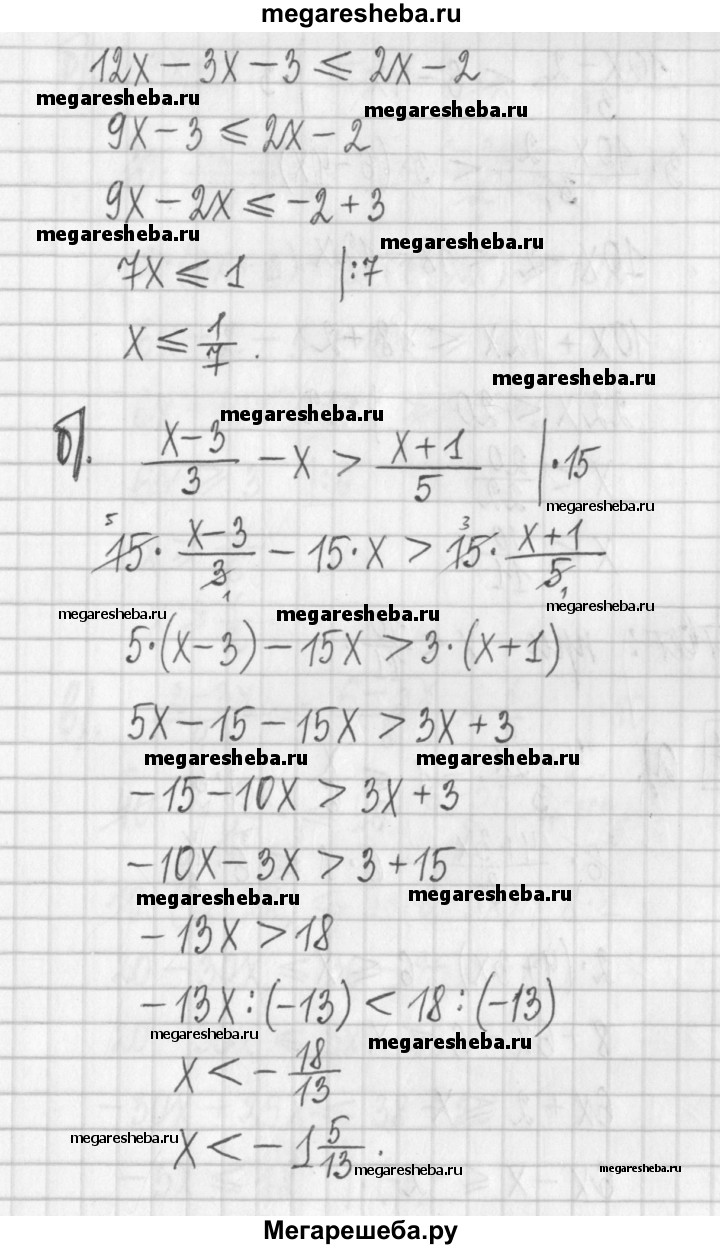 megaresheba.ru
12x − 3x − 3 ⩽ 2x − 2
megaresheba.ru megaresheba.ru
9x − 3 ⩽ 2x − 2
9x − 2x ⩽ −2 + 3
megaresheba.ru megaresheba.ru
7x ⩽ 1 |:7
x ⩽ 1/7.
megaresheba.ru
megaresheba.ru
б). (x−3)/3 − x > (x+1)/5 |·15
megaresheba.ru
5 3
15 · (x−3)/3 − 15·x > 15 · (x+1)/5
1 1
megaresheba.ru megaresheba.ru megaresheba.ru
5·(x−3) − 15x > 3·(x+1)
5x − 15 − 15x > 3x + 3
megaresheba.ru megaresheba.ru
−15 − 10x > 3x + 3
−10x − 3x > 3 + 15
megaresheba.ru megaresheba.ru
−13x > 18
−13x : (−13) < 18 : (−13)
megaresheba.ru megaresheba.ru
x < − 18/13
megaresheba.ru
x < − 1 5/13.
megaresheba.ru megaresheba.ru
Мегарешеба.ру